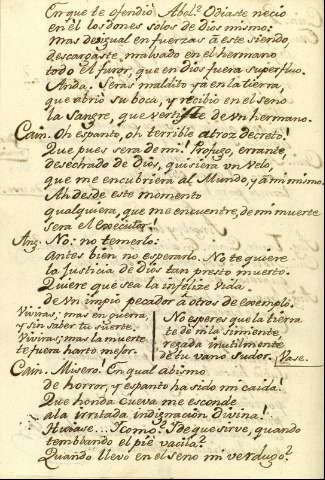 En que te ofendió Abel? Odiaste necio
en él los dones solos de Dios mismo:
mas desigual en fuerzas á este siendo,
descargaste malvado en el hermano
todo el furor, que en Dios fuera superfluo.
Anda. Serás maldito ya en la tierra,
que abrió su boca, y recibió en el seno
la Sangre, que vertiste de Vn hermano.
Cain. Oh espanto, oh terrible atroz decreto!
Que pues será de mi! Profugo, errante,
desechado de Dios, quisiera vn velo,
que me encubriera al Mundo, y á mi mismo.
Ah desde este momento
qualquiera, que me encuentre, de mi muerte
será el executor!
Ang. No: no temerlo:
antes bien no esperarlo. No te quiere
la Justicia de Dios tan presto muerto.
Quiere que sea la infelize vida
de Vn impio pecador á otros de exemplo.
Viviras; mas en guerra,
y sin saber tu suerte.
Viviras; mas la muerte
te fuera harto mejor.
No esperes que la tierra
te dé n la simiente
rezada inutilmente
de tu vano sudor. Vase.
Cain. Misero! En qual abismo
de horror, y espanto ha sido mi caida!
Que honda cueva me esconde
a la irritada indignacion divina!
Huiase... I como? I de que sirve, quando
temblando el pie vacila?
Quando llevo en el seno mi verdugo?